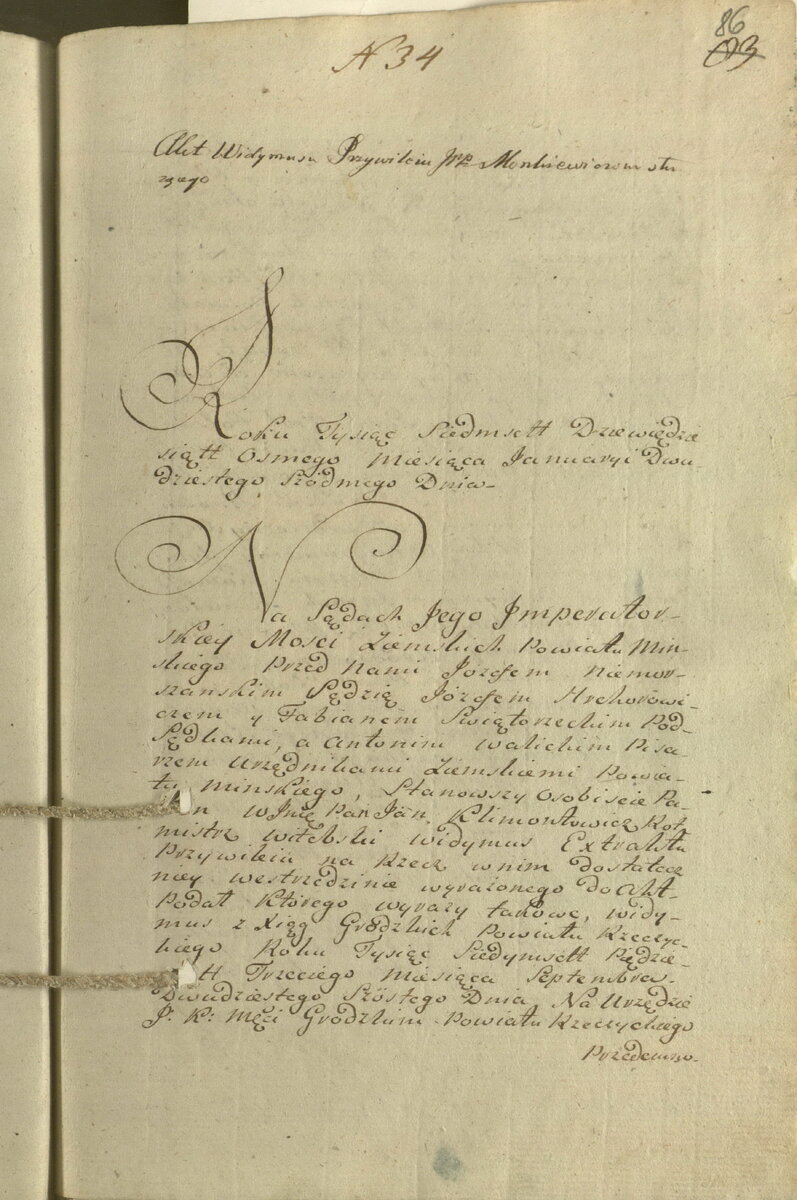 86
93
N 34
Akt Widymusu Przywileiu JPP Monkiewiczom słu
żącego
Roku Tysiąc Siedmsett Dziewiędzie
siątt Osmego Miesiąca Januaryi Dwu-
dziestego Siódmego Dnia-
Na Sądach Jego Imperator-
skiey Mosci Ziemskich Powiatu Min-
skiego Przed Nami Józefem Niemor-
szańskim Sędzią Józefem Hrehorowi-
czem y Fabianem Swiątorzeckim Pod-
Sędkami, a Antonim Walickim Pisa
rzem Urzędnikami Ziemskiemi Powia-
tu Minskiego, Stanowszy Osobiscie Pa-
n WJmć Pan Jan Klimontowicz Rot
mistrz Witebski Widymus Extraktu
Przywileiu na Rzecz w nim dostatecz
niey we srzedzinie wyrażonego do Akt-
Podał Którego wyrazy takowe, Widy-
mus z Xiąg Grodzkich Powiatu Rzeczyc-
kiego Roku Tysiąc Siedymsett Pędzie-
tt Trzeciego Miesiąca Septembra-
Dwudziestego Szóstego Dnia, Na Urzędzie
J: K: Mści Grodzkim Powiatu Rzeczyckiego
Przedemno-